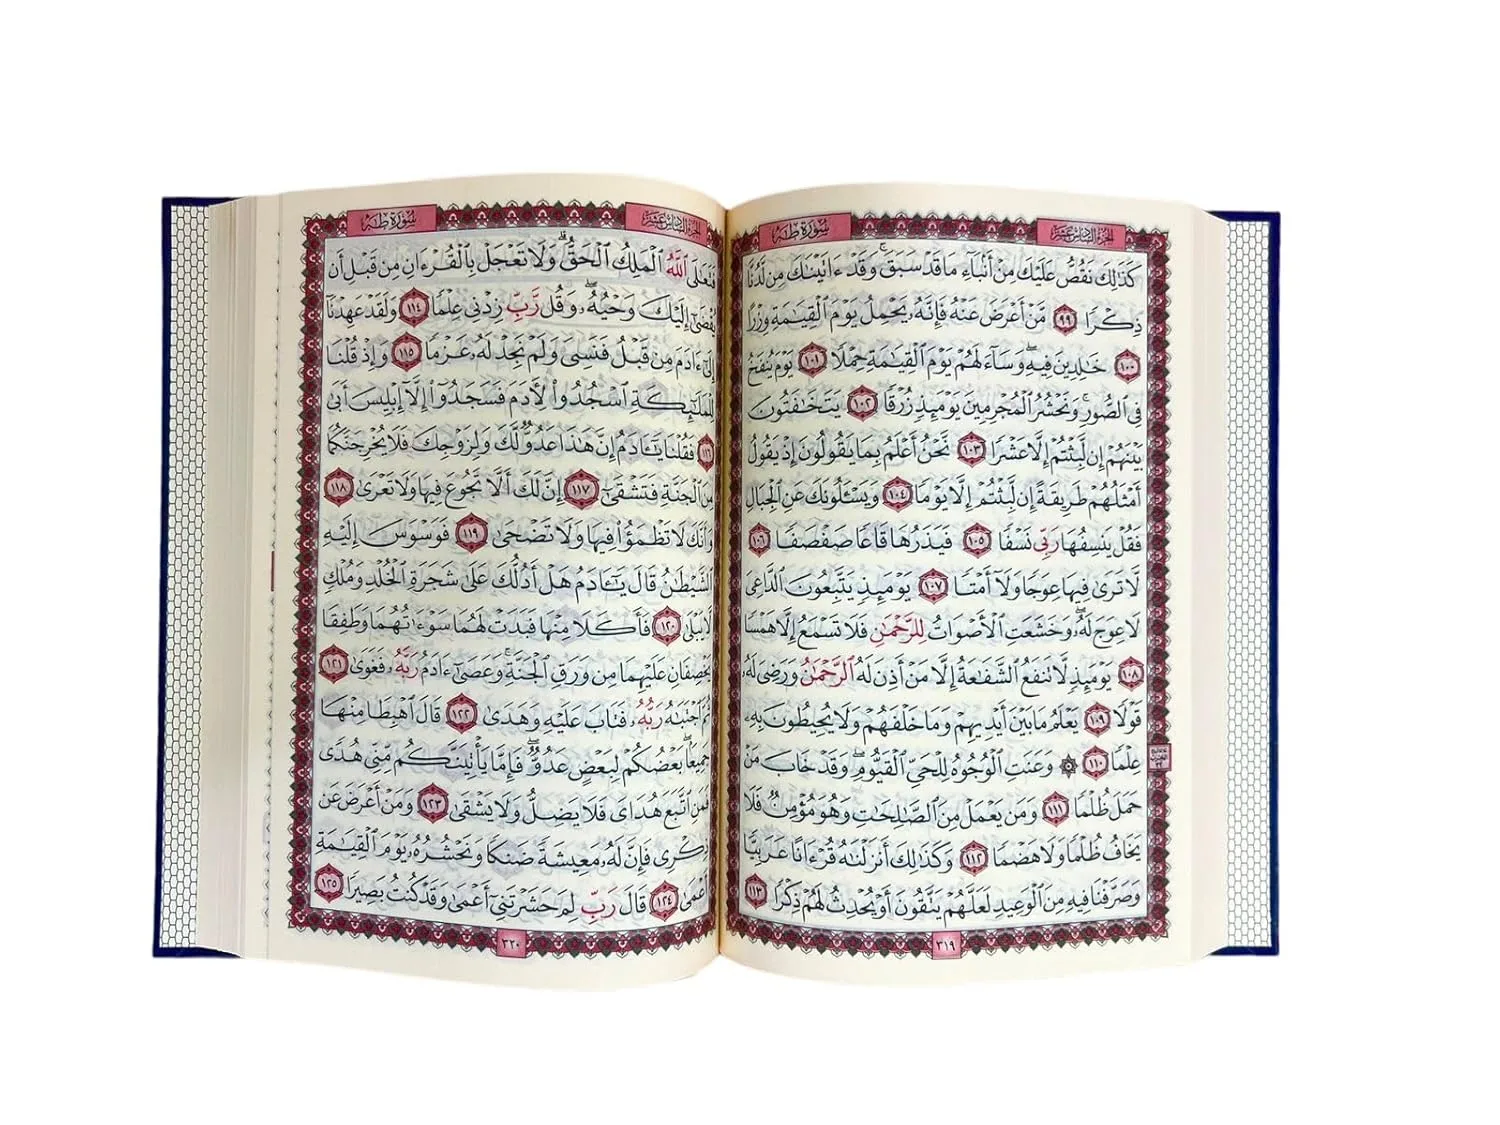 الجزء السادس عشر
سورة طه
كَذَٰلِكَ نَقُصُّ عَلَيْكَ مِنْ أَنۢبَآءِ مَا قَدْ سَبَقَۚ وَقَدْ ءَاتَيْنَٰكَ مِن لَّدُنَّا
ذِكْرًا ٩٩ مَّنْ أَعْرَضَ عَنْهُ فَإِنَّهُۥ يَحْمِلُ يَوْمَ ٱلْقِيَٰمَةِ وِزْرًا
١٠٠ خَٰلِدِينَ فِيهِۖ وَسَآءَ لَهُمْ يَوْمَ ٱلْقِيَٰمَةِ حِمْلًا ١٠١ يَوْمَ يُنفَخُ
فِى ٱلصُّورِۚ وَنَحْشُرُ ٱلْمُجْرِمِينَ يَوْمَئِذٍ زُرْقًا ١٠٢ يَتَخَٰفَتُونَ
بَيْنَهُمْ إِن لَّبِثْتُمْ إِلَّا عَشْرًا ١٠٣ نَّحْنُ أَعْلَمُ بِمَا يَقُولُونَ إِذْ يَقُولُ
أَمْثَلُهُمْ طَرِيقَةً إِن لَّبِثْتُمْ إِلَّا يَوْمًا ١٠٤ وَيَسْـَٔلُونَكَ عَنِ ٱلْجِبَالِ
فَقُلْ يَنسِفُهَا رَبِّى نَسْفًا ١٠٥ فَيَذَرُهَا قَاعًا صَفْصَفًا ١٠٦
لَّا تَرَىٰ فِيهَا عِوَجًا وَلَآ أَمْتًا ١٠٧ يَوْمَئِذٍ يَتَّبِعُونَ ٱلدَّاعِىَ
لَا عِوَجَ لَهُۥۖ وَخَشَعَتِ ٱلْأَصْوَاتُ لِلرَّحْمَٰنِ فَلَا تَسْمَعُ إِلَّا هَمْسًا
١٠٨ يَوْمَئِذٍ لَّا تَنفَعُ ٱلشَّفَٰعَةُ إِلَّا مَنْ أَذِنَ لَهُ ٱلرَّحْمَٰنُ وَرَضِىَ لَهُۥ
قَوْلًا ١٠٩ يَعْلَمُ مَا بَيْنَ أَيْدِيهِمْ وَمَا خَلْفَهُمْ وَلَا يُحِيطُونَ بِهِۦ
عِلْمًا ١١٠ ۞ وَعَنَتِ ٱلْوُجُوهُ لِلْحَىِّ ٱلْقَيُّومِۖ وَقَدْ خَابَ مَنْ
حَمَلَ ظُلْمًا ١١١ وَمَن يَعْمَلْ مِنَ ٱلصَّٰلِحَٰتِ وَهُوَ مُؤْمِنٌ فَلَا
يَخَافُ ظُلْمًا وَلَا هَضْمًا ١١٢ وَكَذَٰلِكَ أَنزَلْنَٰهُ قُرْءَانًا عَرَبِيًّا
وَصَرَّفْنَا فِيهِ مِنَ ٱلْوَعِيدِ لَعَلَّهُمْ يَتَّقُونَ أَوْ يُحْدِثُ لَهُمْ ذِكْرًا ١١٣
٣١٩
الجزء السادس عشر
سورة طه
فَتَعَٰلَى ٱللَّهُ ٱلْمَلِكُ ٱلْحَقُّۗ وَلَا تَعْجَلْ بِٱلْقُرْءَانِ مِن قَبْلِ أَن
يُقْضَىٰٓ إِلَيْكَ وَحْيُهُۥۖ وَقُل رَّبِّ زِدْنِى عِلْمًا ١١٤ وَلَقَدْ عَهِدْنَآ
إِلَىٰٓ ءَادَمَ مِن قَبْلُ فَنَسِىَ وَلَمْ نَجِدْ لَهُۥ عَزْمًا ١١٥ وَإِذْ قُلْنَا
لِلْمَلَٰٓئِكَةِ ٱسْجُدُوا۟ لِءَادَمَ فَسَجَدُوٓا۟ إِلَّآ إِبْلِيسَ أَبَىٰ
١١٦ فَقُلْنَا يَٰٓـَٔادَمُ إِنَّ هَٰذَا عَدُوٌّ لَّكَ وَلِزَوْجِكَ فَلَا يُخْرِجَنَّكُمَا
مِنَ ٱلْجَنَّةِ فَتَشْقَىٰٓ ١١٧ إِنَّ لَكَ أَلَّا تَجُوعَ فِيهَا وَلَا تَعْرَىٰ ١١٨
وَأَنَّكَ لَا تَظْمَؤُا۟ فِيهَا وَلَا تَضْحَىٰ ١١٩ فَوَسْوَسَ إِلَيْهِ
ٱلشَّيْطَٰنُ قَالَ يَٰٓـَٔادَمُ هَلْ أَدُلُّكَ عَلَىٰ شَجَرَةِ ٱلْخُلْدِ وَمُلْكٍ
لَّا يَبْلَىٰ ١٢٠ فَأَكَلَا مِنْهَا فَبَدَتْ لَهُمَا سَوْءَٰتُهُمَا وَطَفِقَا
يَخْصِفَانِ عَلَيْهِمَا مِن وَرَقِ ٱلْجَنَّةِۚ وَعَصَىٰٓ ءَادَمُ رَبَّهُۥ فَغَوَىٰ ١٢١
ثُمَّ ٱجْتَبَٰهُ رَبُّهُۥ فَتَابَ عَلَيْهِ وَهَدَىٰ ١٢٢ قَالَ ٱهْبِطَا مِنْهَا
جَمِيعًۢاۖ بَعْضُكُمْ لِبَعْضٍ عَدُوٌّۖ فَإِمَّا يَأْتِيَنَّكُم مِّنِّى هُدًى
فَمَنِ ٱتَّبَعَ هُدَاىَ فَلَا يَضِلُّ وَلَا يَشْقَىٰ ١٢٣ وَمَنْ أَعْرَضَ عَن
ذِكْرِى فَإِنَّ لَهُۥ مَعِيشَةً ضَنكًا وَنَحْشُرُهُۥ يَوْمَ ٱلْقِيَٰمَةِ
أَعْمَىٰ ١٢٤ قَالَ رَبِّ لِمَ حَشَرْتَنِىٓ أَعْمَىٰ وَقَدْ كُنتُ بَصِيرًا ١٢٥
٣٢٠